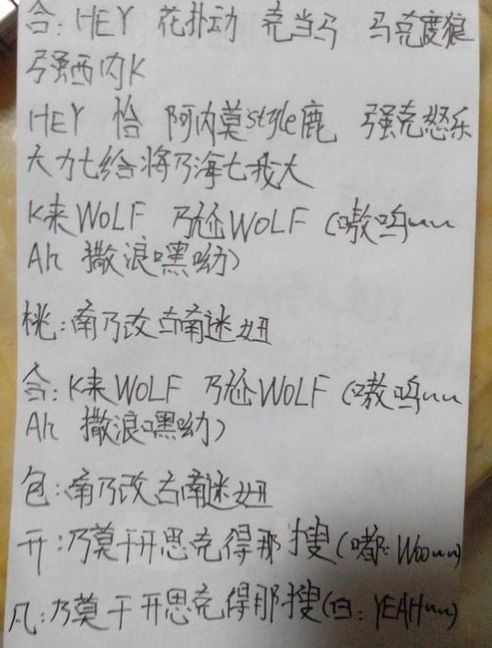 合: HEY 花扑动 克当马 马克度狼
强西内K
HEY 恰 阿内莫style鹿 强克怒乐
大力七给将乃海七我大
K来WOLF 乃尬WOLF (嗷呜~~
Ah 撒浪嘿呦)
桃: 南乃改古南迷妞
合: K来WOLF 乃尬WOLF (嗷呜~~
Ah 撒浪嘿呦)
包: 南乃改古南迷妞
开: 乃莫干开思克得那搜(嘟: Woo~~)
凡: 乃莫干开思克得那搜(白: YEAH~~)